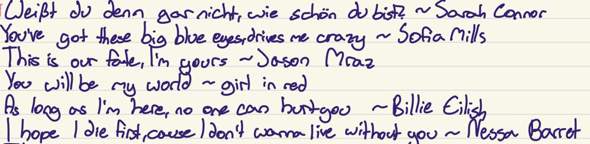 Weißt du denn gar nicht, wie schön du bist? ~ Sarah Connor
You've got these big blue eyes, drives me crazy ~ Sofia Mills
This is our fate, I'm yours ~ Jason Mraz
You will be my world ~ girl in red
As long as I'm here, no one can hurt you ~ Billie Eilish
I hope I die first, cause I don't wanna live without you ~ Nessa Barret